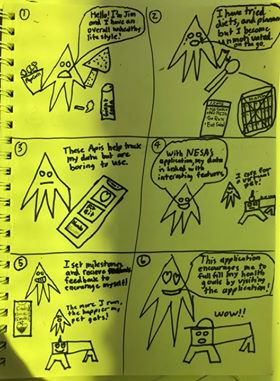 ①
Hello! I'm Jim
and I have an
overall unhealthy
life style!
②
I have tried
diets, and plans
but I become
unmotivated
on the go.
③
These Apps help track
my data but are
boring to use.
④
With NESAS
application, my data
is linked with
interesting features.
I care for
a virtual
pet!
⑤
I set milestones
and recieve
feedback to
encourage myself!
The more I run,
the happier my
pet gets!
⑥
This application
encourages me to
full fill my health
goals by visiting
the application!
WOW!!